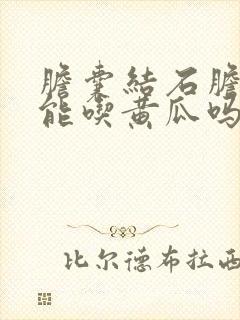 膽囊結石膽
能喫黃瓜嗎
比尔德布拉西